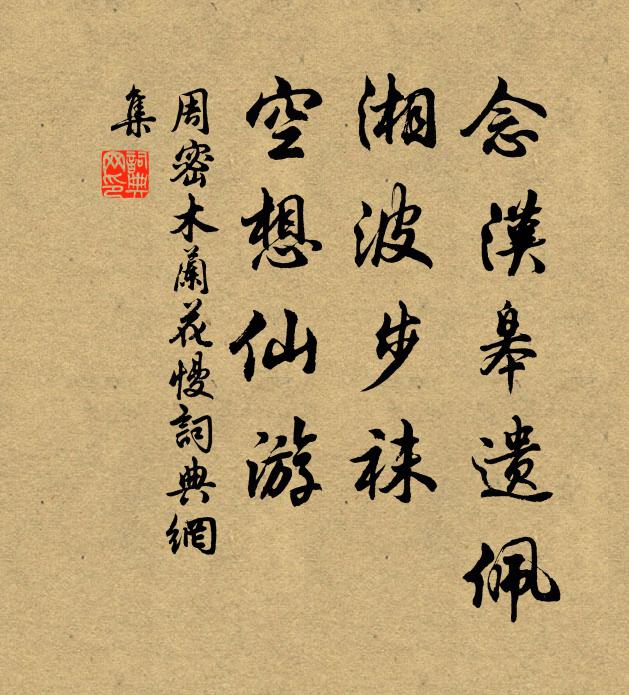 念漢皋遗佩
湘波步袜
空想仙游
周密木蘭花慢詞典網
集
詞典
网印